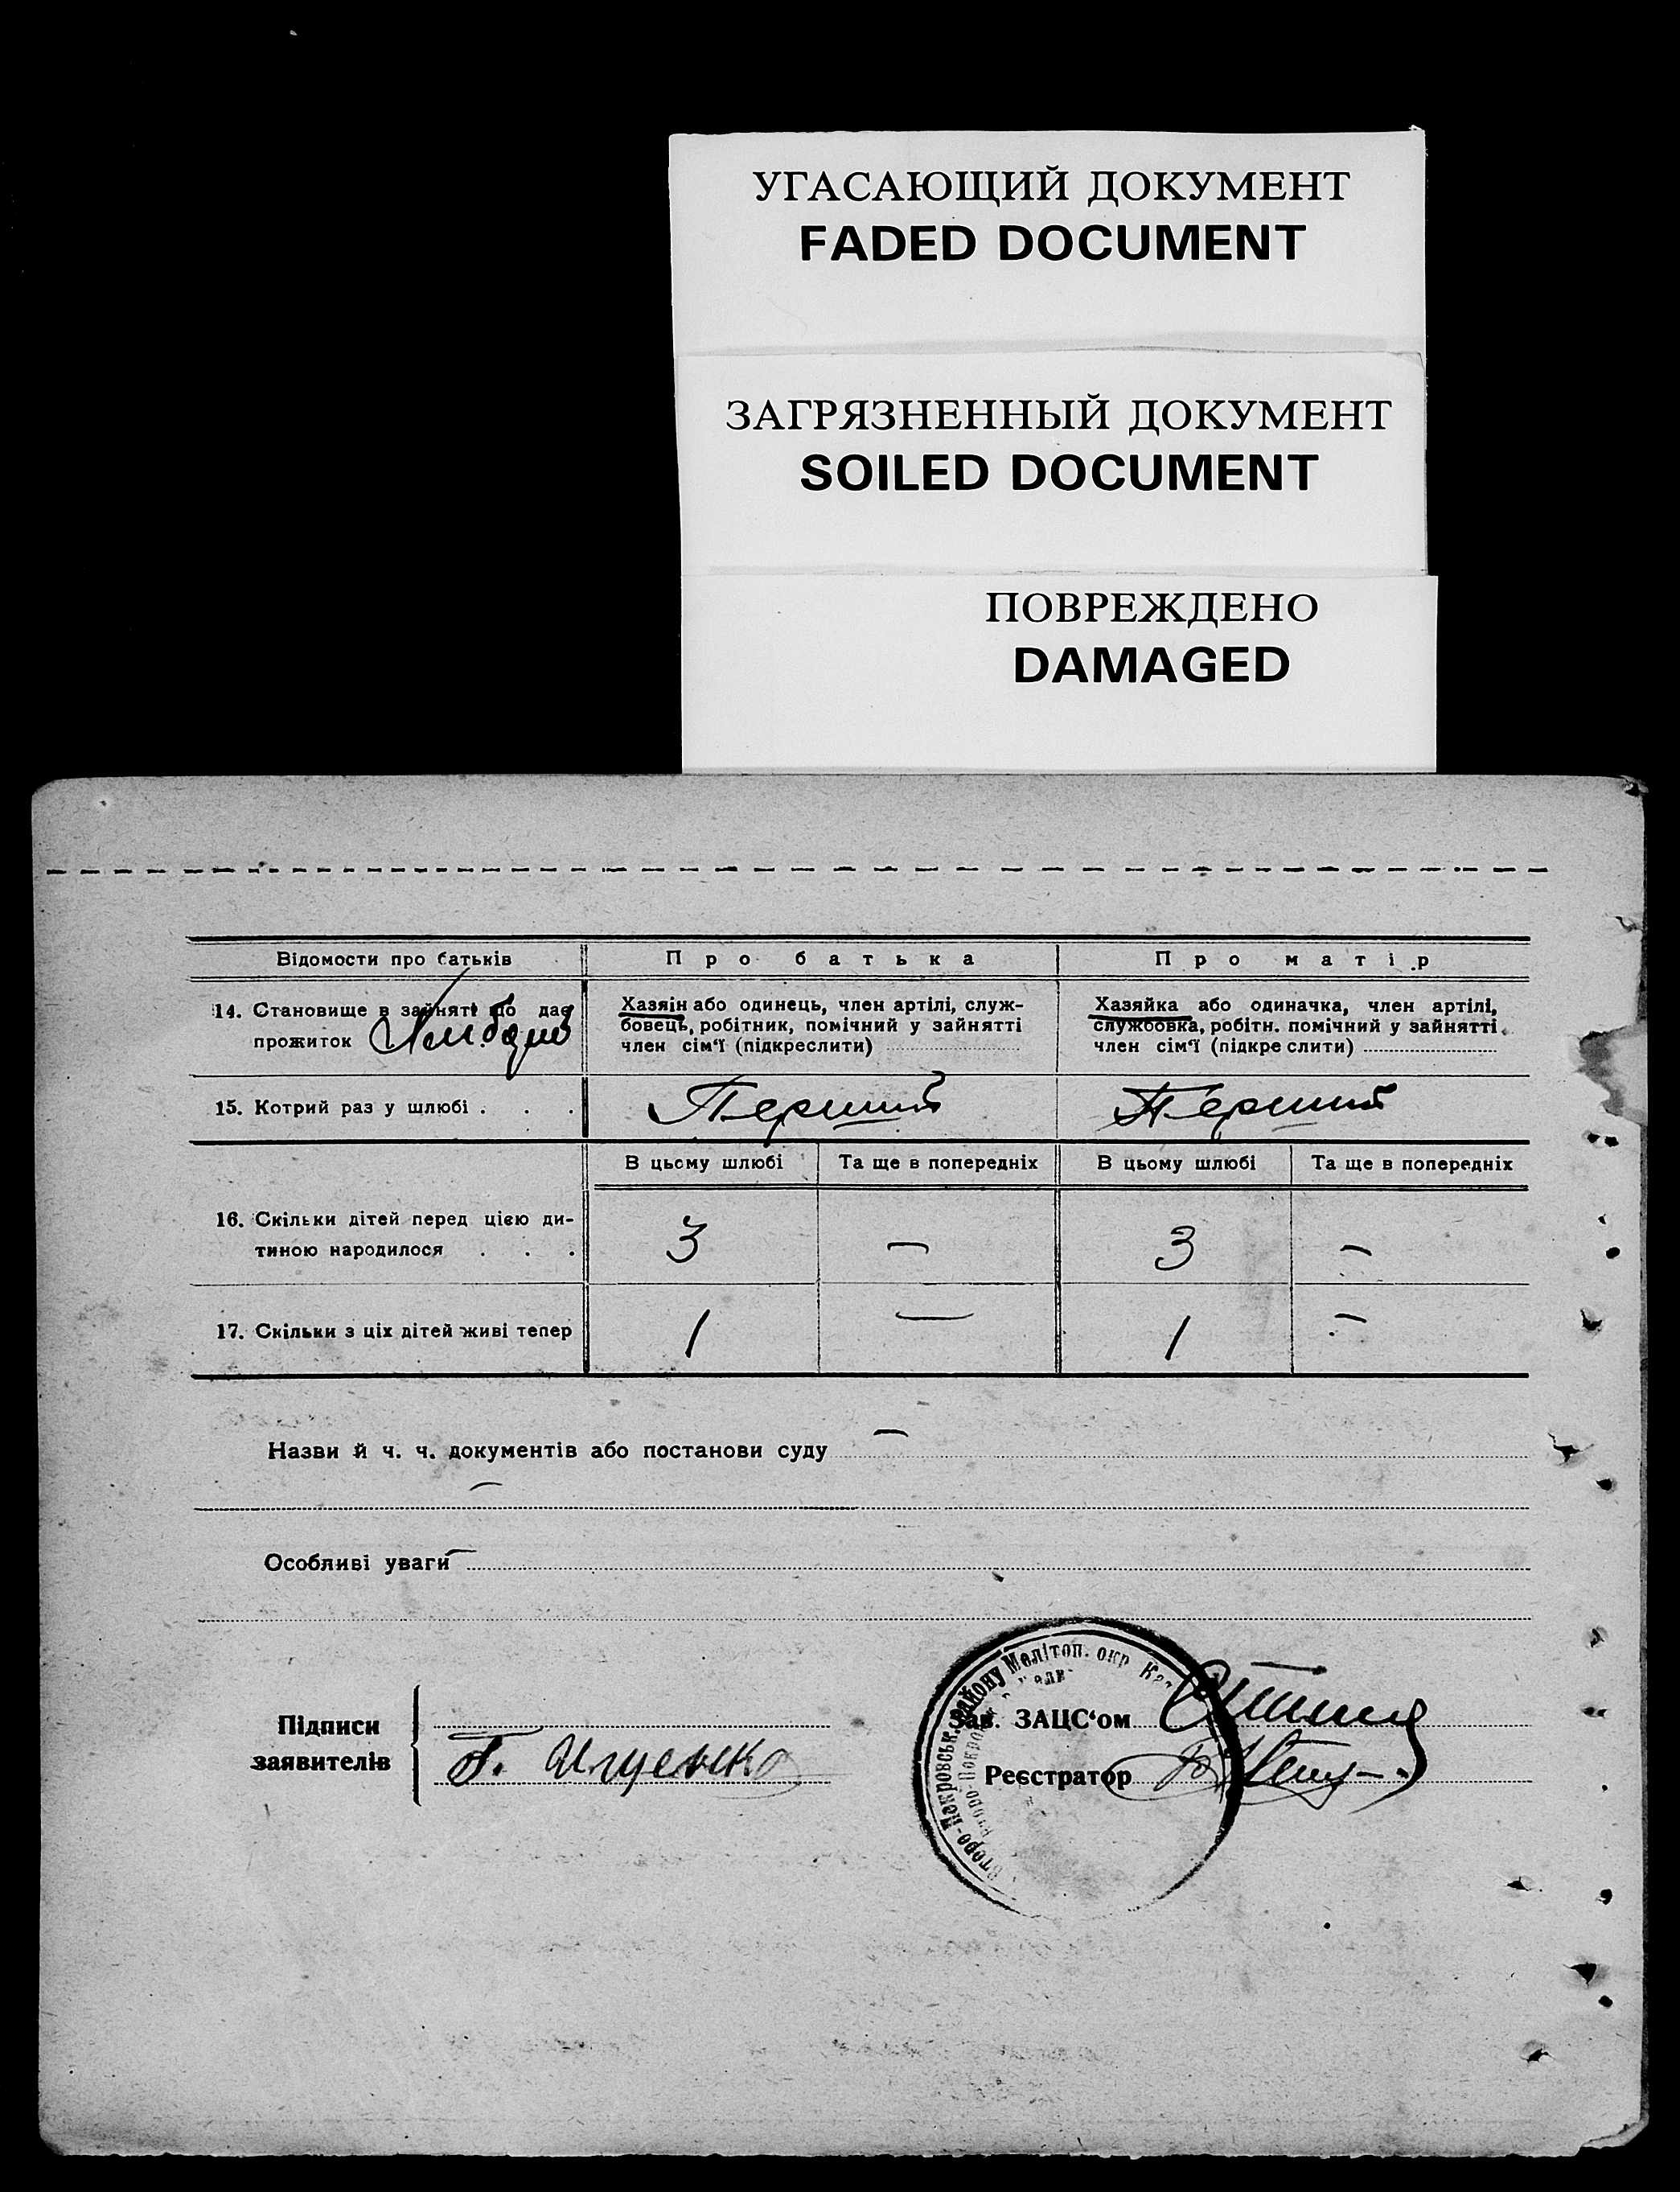 УГАСАЮЩИЙ ДОКУМЕНТ
FADED DOCUMENT
ЗАГРЯЗНЕННЫЙ ДОКУМЕНТ
SOILED DOCUMENT
ПОВРЕЖДЕНО
DAMAGED
Відомости про батьків
Про батька
Про матір
14. Становище в зайняті що дає
прожиток
Хазяін або одинець, член артілі, служ-
бовець, робітник, помічний у зайнятті
член сім'ї (підкреслити)
Хазяйка або одиначка, член артілі,
службовка, робітн. помічний у зайнятті
член сім'ї (підкреслити)
15. Котрий раз у шлюбі . . .
Перший
Перший
В цьому шлюбі
Та ще в попередніх
В цьому шлюбі
Та ще в попередніх
16. Скільки дітей перед цією ди-
тиною народилося . . .
3
—
3
—
17. Скільки з ціх дітей живі тепер
1
—
1
—
Назви й ч. ч. документів або постанови суду —
—
Особливі уваги —
Підписи
заявителів
Г. Ищенко
Зав. ЗАЦС'ом
Реєстратор
Покровськ. району Меліտոп. окр